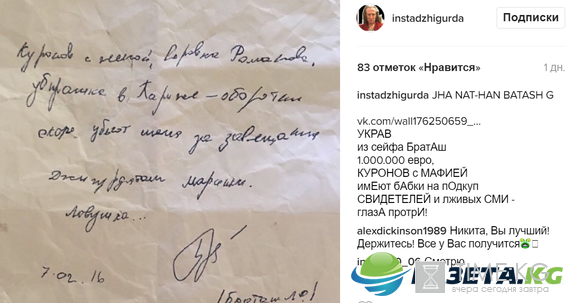 Куронов с женой, воровка Романова,
убирашка в Карине – оборотни
скоро убьют меня за завещание
Джигурдам
Ловушка...
7.02.16
instadzhigurda
Подписки
83 отметок «Нравится»
1 дн.
instadzhigurda JHA NAT-HAN BATASH G
vk.com/wall176250659_...
УКРАВ
из сейфа БратАш
1.000.000 евро,
КУРОНОВ с МАФИЕЙ
имЕют бАбки на пОдкуп
СВИДЕТЕЛЕЙ и лживых СМИ -
глазА протрИ!
alexdickinson1989 Никита, Вы лучший!
Держитесь! Все у Вас получится
06 Смотрю
ГАЗЕТА.KG
вчера сегодня завтра